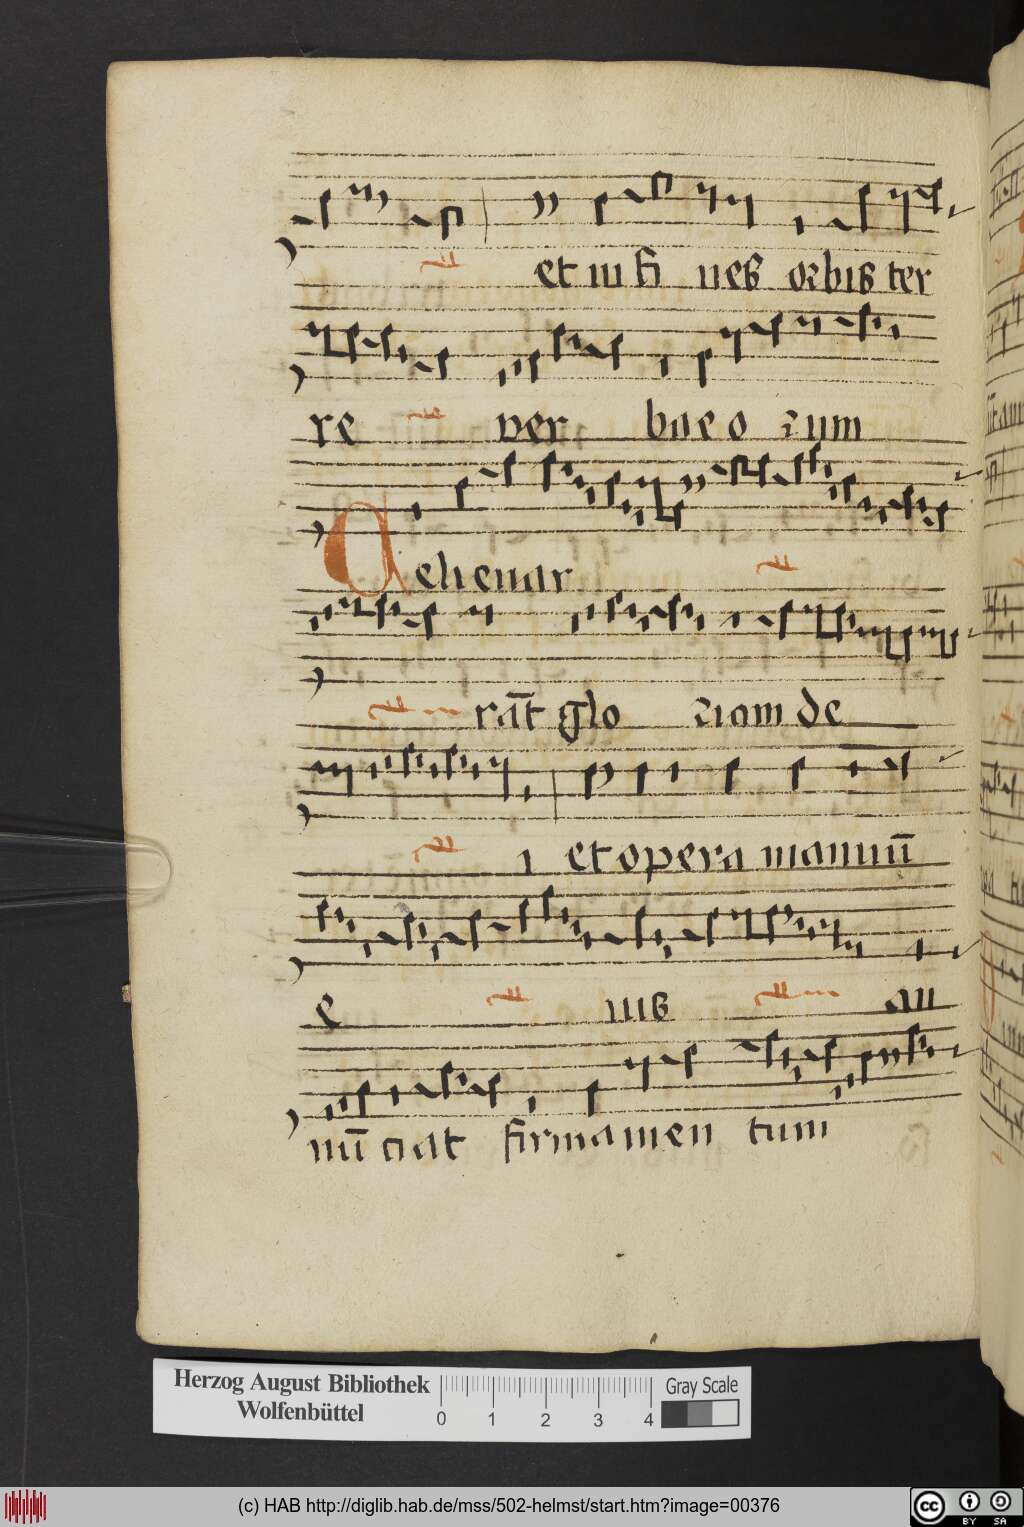 et in fi nes orbis ter
re ver ba e o rum
Celi enar
rāt glo riam de
i et opera manuū
e ius an
nū ciat firmamen tum
Herzog August Bibliothek
Wolfenbüttel
0 1 2 3 4
Gray Scale
(c) HAB http://diglib.hab.de/mss/502-helmst/start.htm?image=00376
cc BY SA